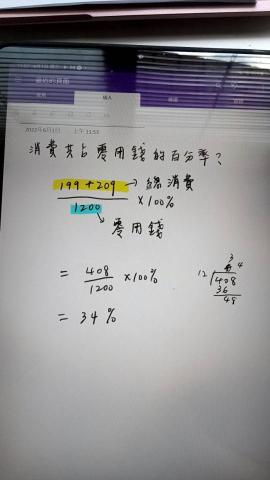 2022年6月1日 上午 11:53
消費共占零用錢的百分率?
199+209 → 總消費
1200 ×100%
零用錢
= 408
1200 ×100%
= 34%
34
12 408
36
48